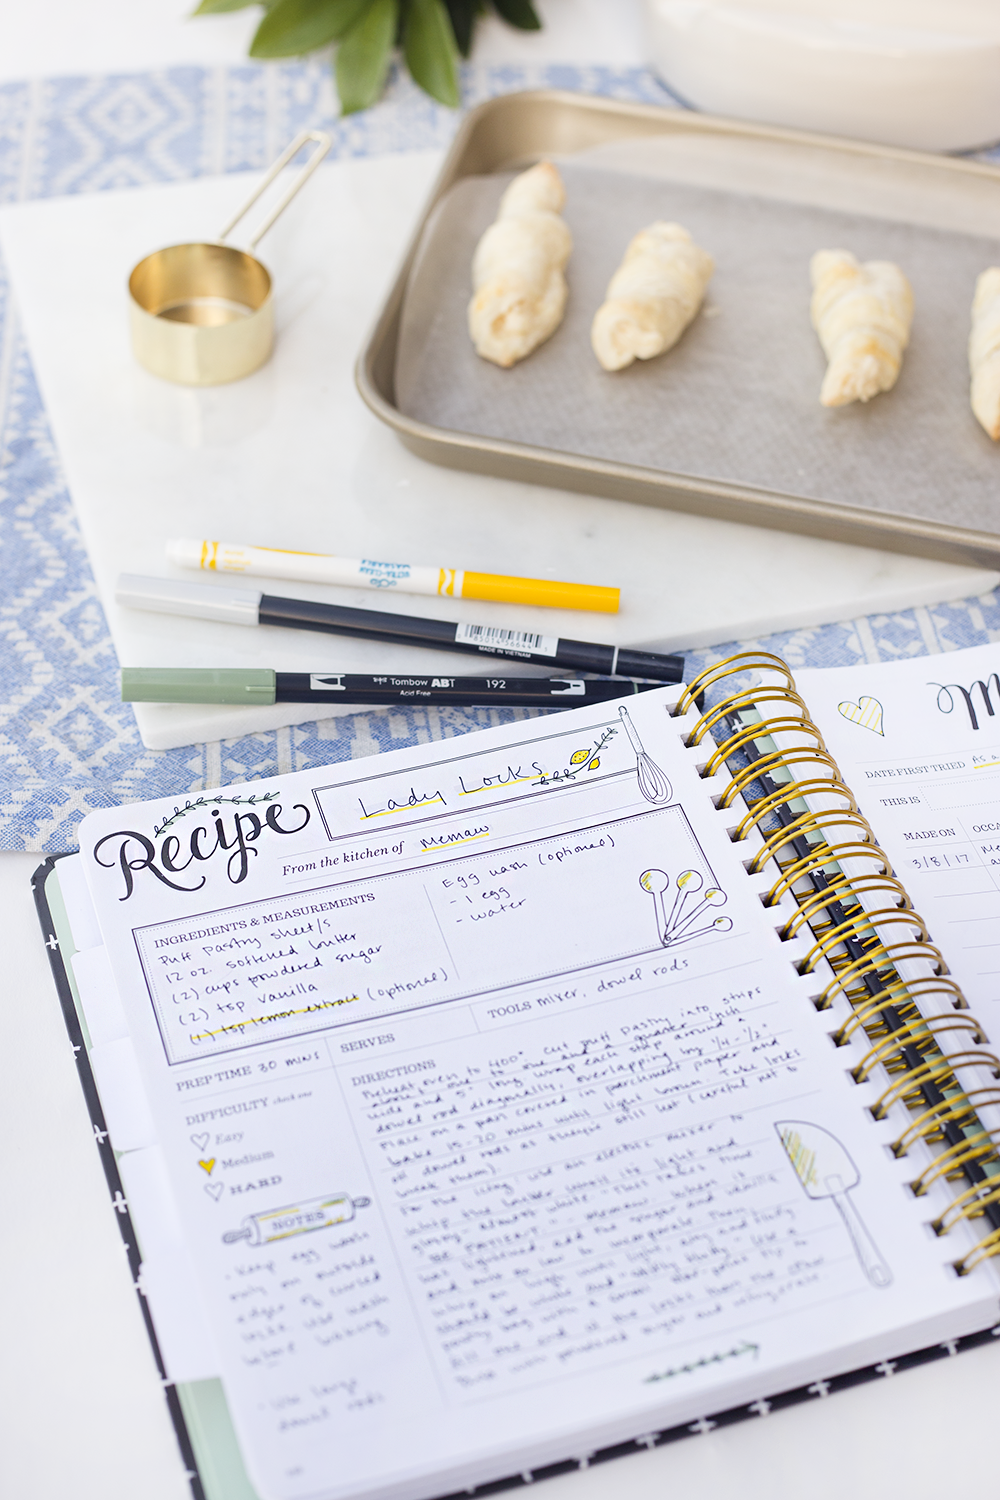 ULTRA-CLEAN
WASHABLE
MADE IN VIETNAM
Tombow ABT 192
Acid Free
Recipe
Lady Locks
From the kitchen of Memaw
INGREDIENTS & MEASUREMENTS
Puff Pastry sheet/s
12 oz. softened butter
(2) cups powdered sugar
(2) tsp vanilla
(1) tsp lemon extract (optional)
Egg wash (optional)
- 1 egg
- water
PREP TIME 30 mins
SERVES
TOOLS mixer, dowel rods
DIFFICULTY check one
Easy
Medium
HARD
NOTES
- Keep egg wash
only on outside
edges of
before baking
- Use large
dowel rods
DIRECTIONS
Preheat oven to 400° cut puff pastry into strips
about one to one and a quarter inch
wide and 5" long wrap each strip around a
dowel rod diagonally, overlapping by 1/4 - 1/2.
Place on a pan covered in parchment paper and
bake 15-20 mins until light brown. Take locks
off dowel rods as they're still hot (careful not to
break them).
For the icing use an electric mixer to
whip the butter until it's light and
almost white - this takes time.
BE PATIENT - Memaw. When it
has lightened, add the sugar and vanilla
and mix on low to incorporate then
whip on high until light, airy and fluffy.
pastry bag with a
fill one end of the locks then the other
powdered sugar and
M
DATE FIRST TRIED As a
THIS IS
MADE ON OCCA
3/8/17 Me